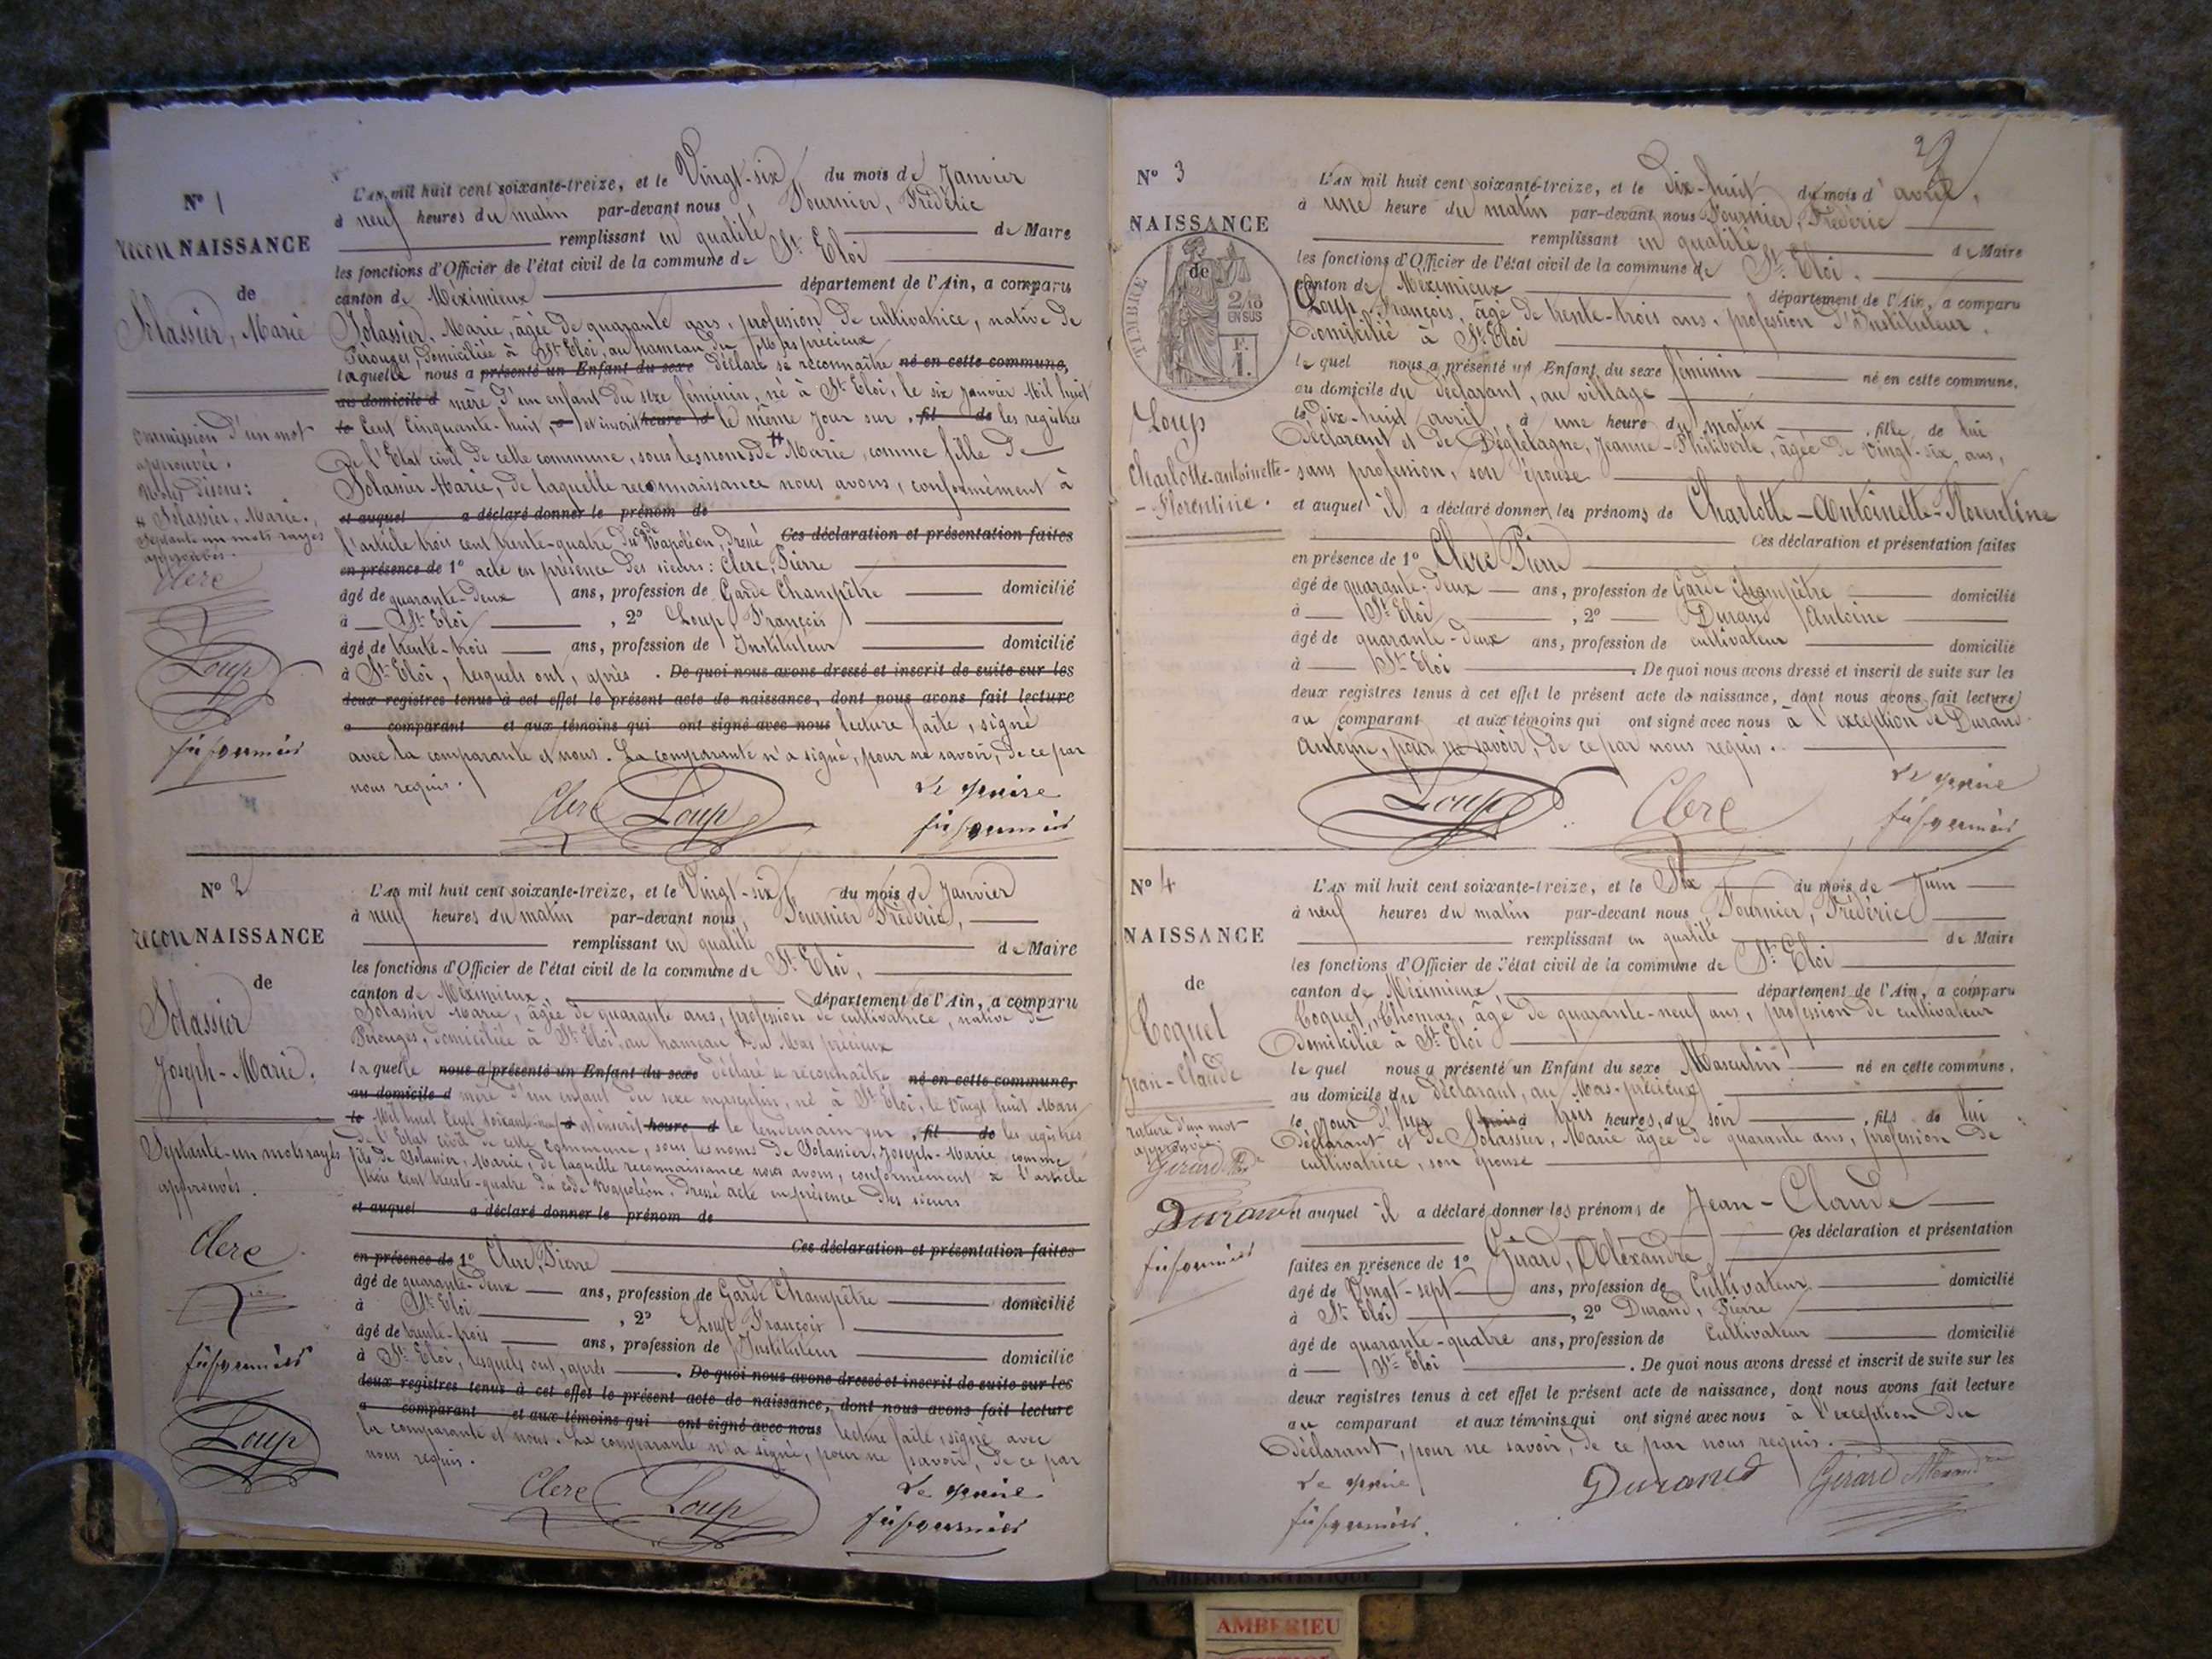 N° 1
reconNAISSANCE
de
Solassier, Marie
Ommission d'un mot
approuvée.
Nobis disons:
# Solassier, Marie.,
Septante un mots rayés
approuvés.
Clerc
Loup
fréd fournier
L'AN mil huit cent soixante-treize, et le Vingt-six du mois de Janvier
à neuf heures du matin par-devant nous, Fournier, Frédéric
remplissant en qualité de Maire
les fonctions d'Officier de l'état civil de la commune de St Eloi
canton de Méximieux département de l'Ain, a comparu
Solassier, Marie, âgée de quarante ans, profession de cultivatrice, native de
Pérouges, domiciliée à St Eloi, au hameau du Mas précieux
laquelle nous a présenté un Enfant du sexe déclaré se reconnaître né en cette commune,
au domicile d mère d'un enfant du sexe féminin, né à St Eloi, le six Janvier Mil huit
le Cent Cinquante-huit, et inscrit heure d le même jour sur , fil de les registres
de l'Etat civil de cette commune, sous les noms de # Marie, comme fille de
Solassier Marie, de laquelle reconnaissance nous avons, conformément à
et auquel a déclaré donner le prénom de
l'article trois cent trente-quatre du Code Napoléon, dressé Ces déclaration et présentation faites
en présence de 1° acte en présence des sieurs : Clerc, Pierre
âgé de quarante-deux ans, profession de Garde Champêtre domicilié
à St Eloi , 2° Loup François
âgé de trente-trois ans, profession de Instituteur domicilié
à St Eloi, lesquels ont, après . De quoi nous avons dressé et inscrit de suite sur les
deux registres tenus à cet effet le présent acte de naissance, dont nous avons fait lecture
a comparant et aux témoins qui ont signé avec nous lecture faite, signé
avec la comparante et nous. La comparante n'a signé, pour ne savoir, de ce par
nous requis.
Clerc Loup Le Maire
fréd fournier
N° 2
reconNAISSANCE
de
Solassier
Joseph-Marie.
Septante-un mots rayés
approuvés.
Clerc
fréd fournier
Loup
L'AN mil huit cent soixante-treize, et le Vingt-six du mois de Janvier
à neuf heures du matin par-devant nous, Fournier Frédéric,
remplissant en qualité de Maire
les fonctions d'Officier de l'état civil de la commune de St Eloi,
canton de Méximieux, département de l'Ain, a comparu
Solassier Marie, âgée de quarante ans, profession de cultivatrice, native de
Pérouges, domiciliée à St Eloi, au hameau du Mas précieux
laquelle nous a présenté un Enfant du sexe déclaré se reconnaître né en cette commune,
au domicile d mère d'un enfant du sexe masculin, né à St Eloi, le Vingt huit Mars
le Mil huit Cent soixante-neuf et inscrit heure d le lendemain sur , fil de les registres
de l'Etat civil de cette commune, sous les noms de Solassier, Joseph-Marie comme
fils de Solassier, Marie, de laquelle reconnaissance nous avons, conformément à l'article
trois Cent trente-quatre du code Napoléon, dressé acte en présence des sieurs
et auquel a déclaré donner le prénom de
Ces déclaration et présentation faites
en présence de 1° Clerc, Pierre
âgé de quarante-deux ans, profession de Garde Champêtre domicilié
à St Eloi , 2° Loup François
âgé de trente-trois ans, profession de Instituteur domicilié
à St Eloi, lesquels ont, après . De quoi nous avons dressé et inscrit de suite sur les
deux registres tenus à cet effet le présent acte de naissance, dont nous avons fait lecture
a comparant et aux témoins qui ont signé avec nous lecture faite, signé avec
la comparante et nous. La comparante n'a signé, pour ne savoir, de ce par
nous requis.
Clerc Loup Le Maire
fréd fournier
2
N° 3
NAISSANCE
de
TIMBRE
2/10
EN SUS
F.
1.
Loup
Charlotte-antoinette-
-Florentine.
L'AN mil huit cent soixante-treize, et le dix-huit du mois d'avril,
à une heure du matin par-devant nous Fournier, Frédéric
remplissant en qualité de Maire
les fonctions d'Officier de l'état civil de la commune de St Eloi.
canton de Méximieux département de l'Ain, a comparu
Loup, François, âgé de trente-trois ans, profession d'Instituteur,
domicilié à St Eloi
lequel nous a présenté un Enfant du sexe féminin né en cette commune,
au domicile du déclarant, au village
le dix-huit avril à une heure du matin , fille de lui
déclarant et de Dégletagne, Jeanne-Philiberte, âgée de vingt-six ans,
sans profession, son épouse
et auquel il a déclaré donner les prénoms de Charlotte-Antoinette-Florentine
Ces déclaration et présentation faites
en présence de 1° Clerc Pierre
âgé de quarante-deux ans, profession de Garde Champêtre domicilié
à St Eloi , 2° Durand Antoine
âgé de quarante-deux ans, profession de cultivateur domicilié
à St Eloi . De quoi nous avons dressé et inscrit de suite sur les
deux registres tenus à cet effet le présent acte de naissance, dont nous avons fait lecture
au comparant et aux témoins qui ont signé avec nous à l'exception de Durand
Antoine, pour ne savoir, de ce par nous requis.
Loup Clerc Le Maire
fréd fournier
N° 4
NAISSANCE
de
Coquet
Jean-Claude
rature d'un mot
approuvée.
Girard Alexandre
Durand
fréd fournier
L'AN mil huit cent soixante-treize, et le Six du mois de Juin
à neuf heures du matin par-devant nous Fournier, Frédéric
remplissant en qualité de Maire
les fonctions d'Officier de l'état civil de la commune de St Eloi
canton de Méximieux département de l'Ain, a comparu
Coquet, Thomas, âgé de quarante-neuf ans, profession de cultivateur
domicilié à St Eloi
lequel nous a présenté un Enfant du sexe Masculin né en cette commune,
au domicile du déclarant, au Mas-précieux
le jour d'hier à trois heures, du soir , fils de lui
déclarant et de Solassier, Marie âgée de quarante ans, profession de
cultivatrice, son épouse
et auquel il a déclaré donner les prénoms de Jean-Claude
Ces déclaration et présentation
faites en présence de 1° Girard, Alexandre
âgé de Vingt-sept ans, profession de Cultivateur domicilié
à St Eloi , 2° Durand, Pierre
âgé de quarante-quatre ans, profession de Cultivateur domicilié
à St Eloi . De quoi nous avons dressé et inscrit de suite sur les
deux registres tenus à cet effet le présent acte de naissance, dont nous avons fait lecture
au comparant et aux témoins qui ont signé avec nous à l'exception du
déclarant, pour ne savoir, de ce par nous requis.
Le Maire Durand Girard Alexandre
fréd fournier.
AMBERIEU ARTISTIQUE
AMBERIEU